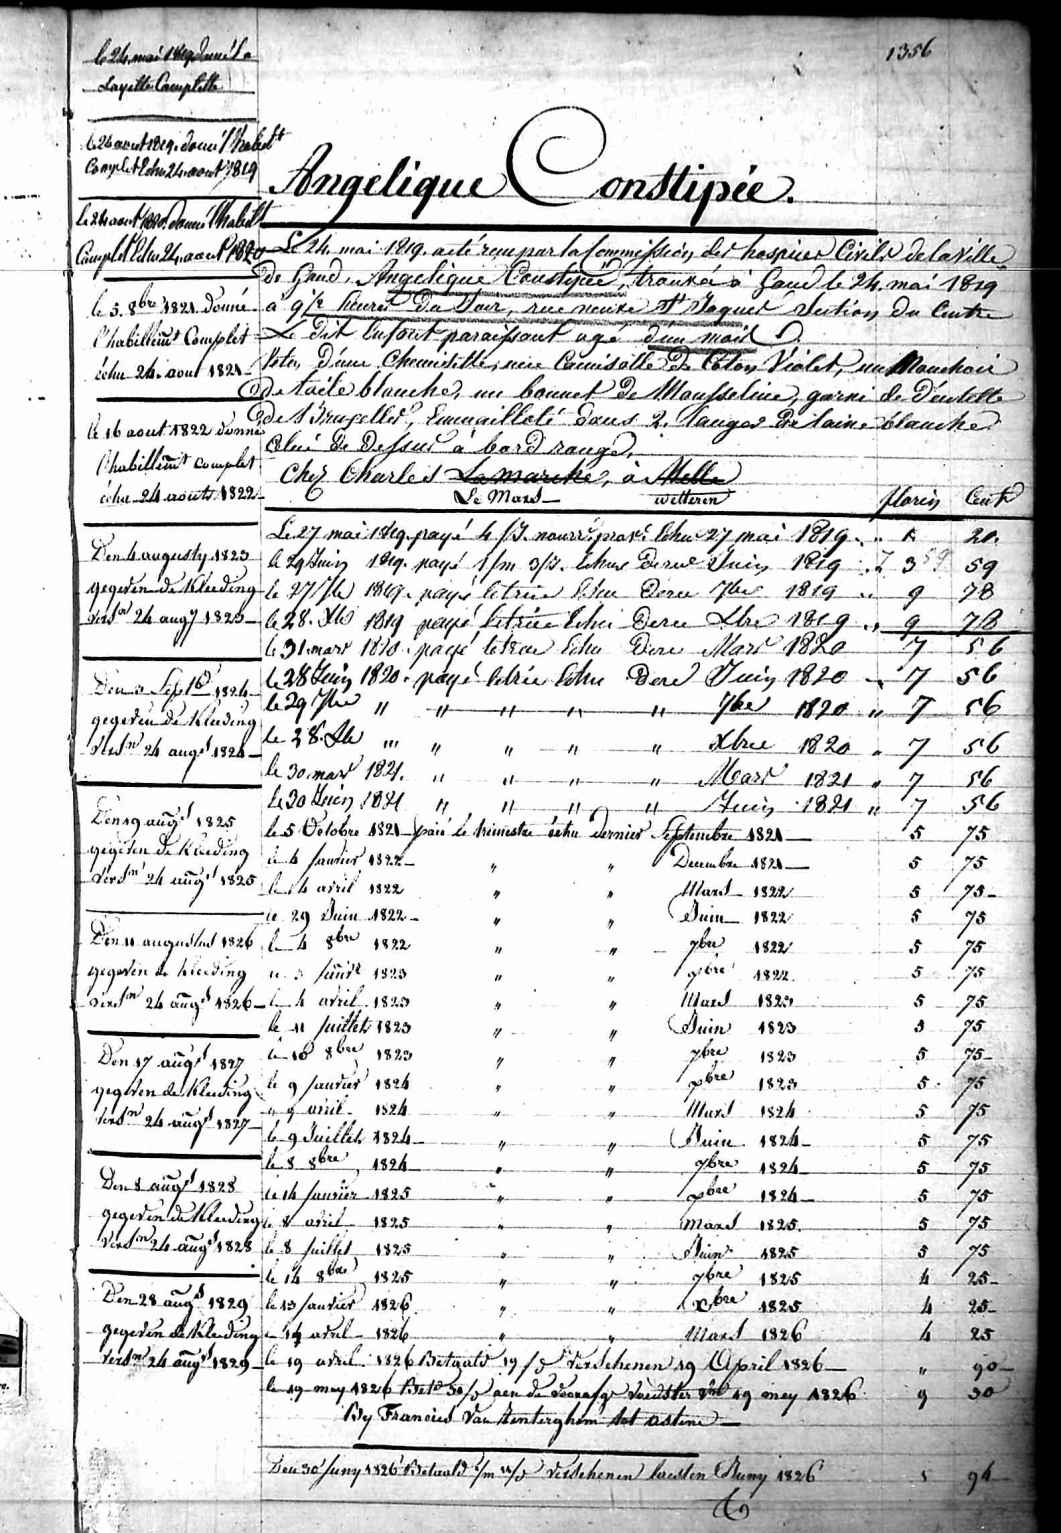 1356
le 24 mai 1819 donné la
Layette Complette
le 24 aout 1819 donné l'habilt
Complet Echu 24 aout 1819
le 24 aout 1820 donné l'habilt
Complet Echu 24 aout 1820
le 5 8bre 1821 donné
l'habillemt Complet
échu 24 aout 1821
le 16 aout 1822 donné
l'habillemt complet
échu 24 aouts 1822
Den 4 augusty 1823
gegeven de Kleeding
versn 24 augs 1823
Den 3 Sept 1824
gegeven de Kleeding
versn 24 augt 1824
Den 19 augt 1825
gegeven de Kleeding
versn 24 augt 1825
Den 11 augustus 1826
gegeven de kleeding
versn 24 augt 1826
Den 17 augt 1827
gegeven de Kleeding
versn 24 augt 1827
Den 8 augt 1828
gegeven de Kleeding
versn 24 augt 1828
Den 28 augt 1829
gegeven de Kleeding
versn 24 augt 1829
Angelique Constipée.
Le 24 mai 1819 a été reçu par la Commission des hospices Civils de la Ville
de Gand, Angelique Constipée, trouvée à Gand le 24 mai 1819
a 9 1/2 heures du Soir, rue neuve St Jaques Section du Centre
Le dit Enfant paraissant agé d'un mois
Vetu d'une Chemisette, une Camisolle de Coton Violet, un Mouchoir
de toile blanche, un bonnet de Mousseline, garni de Dentelle
de Bruxelles, Emmailloté dans 2 langes de laine blanche
celui de Dessus à bord rouge,
Chez Charles Lamarche, à Melle
Le Mars wetteren
florin Cent
Le 27 mai 1819 payé 4/J. Echu 27 mai 1819 " " 20
le 29 Juin 1819 payé 1/m 3/J. Echu Derne Juin 1819 3 59 59
le 27 7bre 1819 payé le trim Echu Derne 7bre 1819 " 9 78
le 28 Xbre 1819 payé le trim Echu Derne Xbre 1819 " 9 78
le 31 mars 1820 payé le trim Echu Dere Mars 1820 7 56
le 28 Juin 1820 payé le trim Echu Dere Juin 1820 " 7 56
le 29 7bre " " " " " 7bre 1820 " 7 56
le 28 Xbre " " " " " Xbre 1820 " 7 56
le 30 mars 1821 " " " " Mars 1821 " 7 56
le 30 Juin 1821 " " " " Juin 1821 " 7 56
le 5 Octobre 1821 paié le trimestre échu Dernier Septembre 1821 5 75
le 4 janvier 1822 " " Decembre 1821 5 75
le 4 avril 1822 " " Mars 1822 5 75
le 29 Juin 1822 " " Juin 1822 5 75
le 4 8bre 1822 " " 7bre 1822 5 75
le 3 janvr 1823 " " 9bre 1822 5 75
le 4 avril 1823 " " Mars 1823 5 75
le 11 juillet 1823 " " Juin 1823 5 75
le 10 8bre 1823 " " 7bre 1823 5 75
le 9 janvier 1824 " " xbre 1823 5 75
" 9 avril 1824 " " Mars 1824 5 75
le 9 Juillet 1824 " " Juin 1824 5 75
le 8 8bre 1824 " " 7bre 1824 5 75
le 14 janvier 1825 " " xbre 1824 5 75
le 8 avril 1825 " " Mars 1825 5 75
le 8 juillet 1825 " " Juin 1825 5 75
le 14 8bre 1825 " " 7bre 1825 4 25
le 13 janvier 1826 " " Xbre 1825 4 25
le 14 avril 1826 " " Mars 1826 4 25
le 19 avril 1826 Betaald 19/d verschenen 19 April 1826 " 90
le 19 mey 1826 Betd 30/d aen de voedster 19 mey 1826 9 30
By Francies Van Renterghem tot astene
Den 30 Juny 1826 Betaald verschenen laesten Juny 1826 1 94